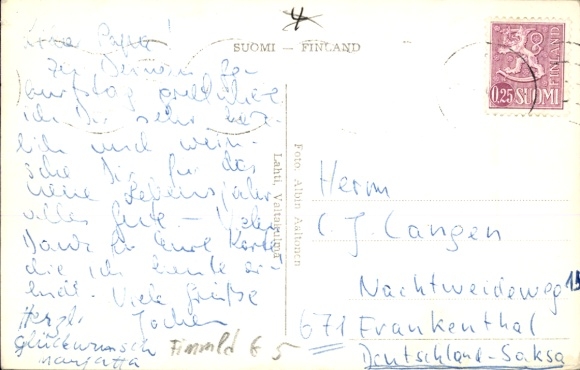 4
SUOMI – FINLAND
0,25 SUOMI
FINLAND
Zu Deinem Ge-
burtstag gratuliere
ich Dir sehr herz-
lich und wün-
sche Dir für das
neue Lebensjahr
alles Gute – Vielen
Dank für Eure Karte
die ich heute er-
hielt. Viele Grüße
Jochen
Herzl.
Glückwunsch
Marjatta
Foto. Albin Aaltonen
Lahti, Valtakulma
Herrn
C. J. Langen
Nachtweideweg 15
671 Frankenthal
Deutschland-Saksa